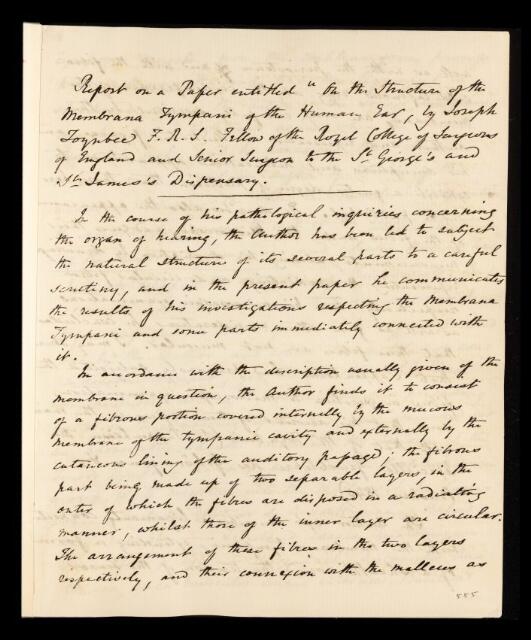 Report on a Paper entitled "On the Structure of the
Membrana Tympani of the Human Ear, by Joseph
Toynbee F.R.S. Fellow of the Royal College of Surgeons
of England and Senior Surgeon to the St. George's and
St. James's Dispensary.
In the course of his pathological inquiries concerning
the organ of hearing, the Author has been led to subject
the natural structure of its several parts to a careful
scrutiny, and in the present paper he communicates
the results of his investigations respecting the Membrana
Tympani and some parts immediately connected with
it.
In accordance with the description usually given of the
membrane in question, the Author finds it to consist
of a fibrous portion covered internally by the mucous
membrane of the tympanic cavity and externally by the
cutaneous lining of the auditory passage; the fibrous
part being made up of two separable layers, in the
outer of which the fibres are disposed in a radiating
manner, whilst those of the inner layer are circular.
The arrangement of these fibres in the two layers
respectively, and their connexion with the malleus as
555